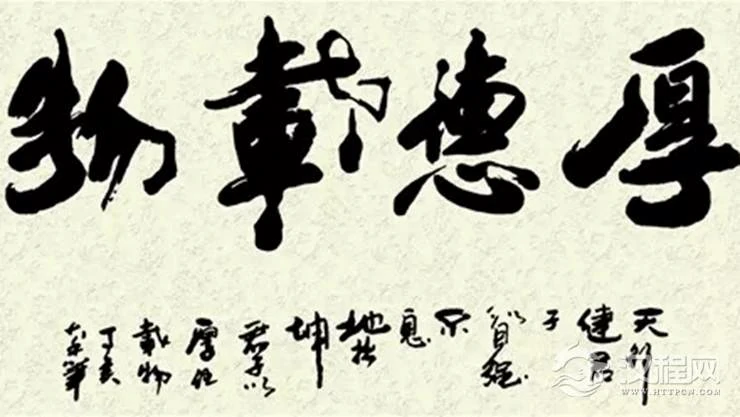 厚德載物
天行
健君
子
以自强
不
息
地势
坤
君子以
厚德
載物
丁亥
汉程网
WWW.HTTPCN.COM